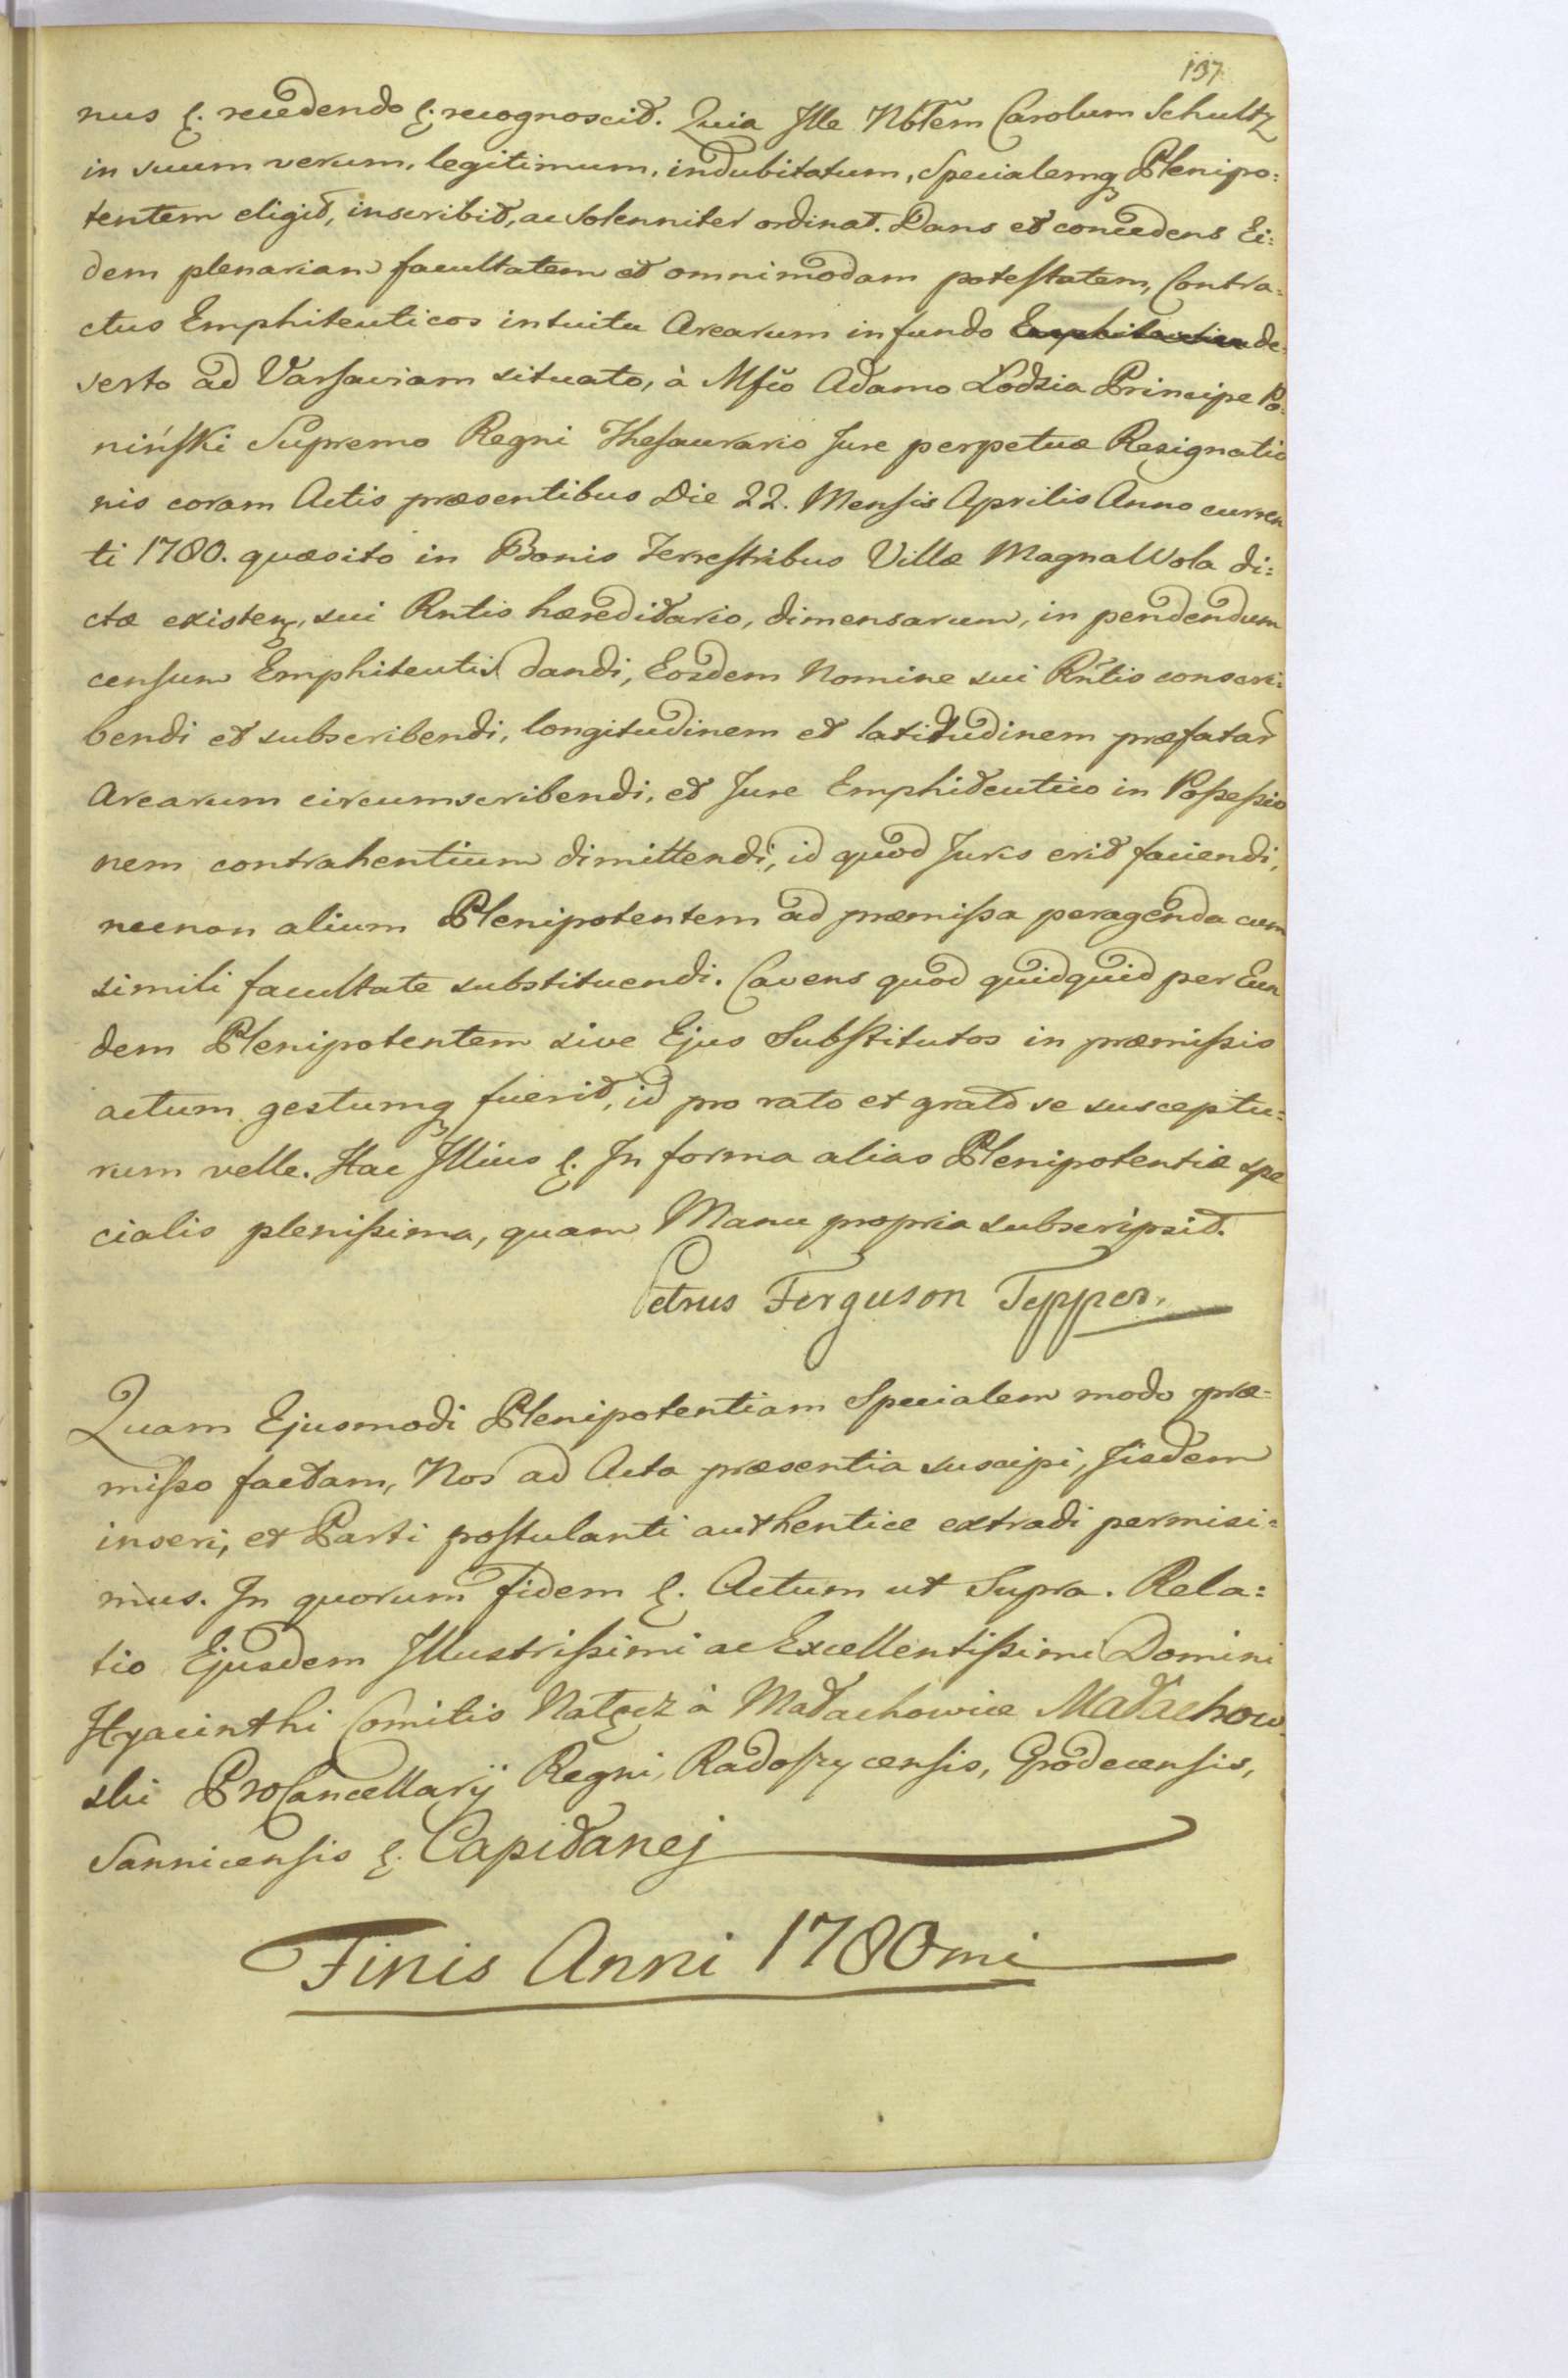 137
nus &. recedendo &. recognoscit. Quia Ille Nbłem Carolum Schultz
in suum verum, legitimum, indubitatum, Specialemq Plenipo:
tentem eligit, inscribit, ac solenniter ordinat. Dans et concedens Ei:
dem plenariam facultatem et omnimodam potestatem, Contra:
ctus Emphiteuticos intuitu Arearum in fundo de:
serto ad Varsaviam situato, à Mfco Adamo Lodzia Principe Po:
niński Supremo Regni Thesaurario Jure perpetuæ Resignatio
nis coram Actis præsentibus Die 22. Mensis Aprilis Anno curren
ti 1780. quæsito in Bonis Terrestribus Villæ Magna Wola di:
ctæ existen, sui Rntis hæreditario, dimensarum, in pendendum
censum Emphiteutis dandi, Eosdem Nomine sui Rntis conscri:
bendi et subscribendi, longitudinem et latitudinem præfatar
Arearum circumscribendi, et Jure Emphiteutico in Possessio
nem contrahentium dimittendi, id quod Juris erit faciendi,
necnon alium Plenipotentem ad præmissa peragenda cum
simili facultate substituendi. Cavens quod quidquid per Eun
dem Plenipotentem sive Ejus Substitutos in præmissis
actum gestumq fuerit, id pro rato et grato se susceptu:
rum velle. Hac Illius &. In forma alias Plenipotentiæ spe
cialis plenissima, quam Manu propria subscripsit.
Petrus Ferguson Tepper.
Quam Ejusmodi Plenipotentiam Specialem modo præ:
misso factam, Nos ad Acta præsentia suscipi, Iisdem
inseri, et Parti postulanti authentice extradi permisi:
mus. In quorum fidem &. Actum ut Supra. Rela:
tio Ejusdem Illustrissimi ac Excellentissimi Domini
Hyacinthi Comitis Nałęcz à Małachowice Małachow
ski ProCancellarij Regni, Radoszycensis, Grodecensis,
Sannicensis &. Capitanej
Finis Anni 1780mi